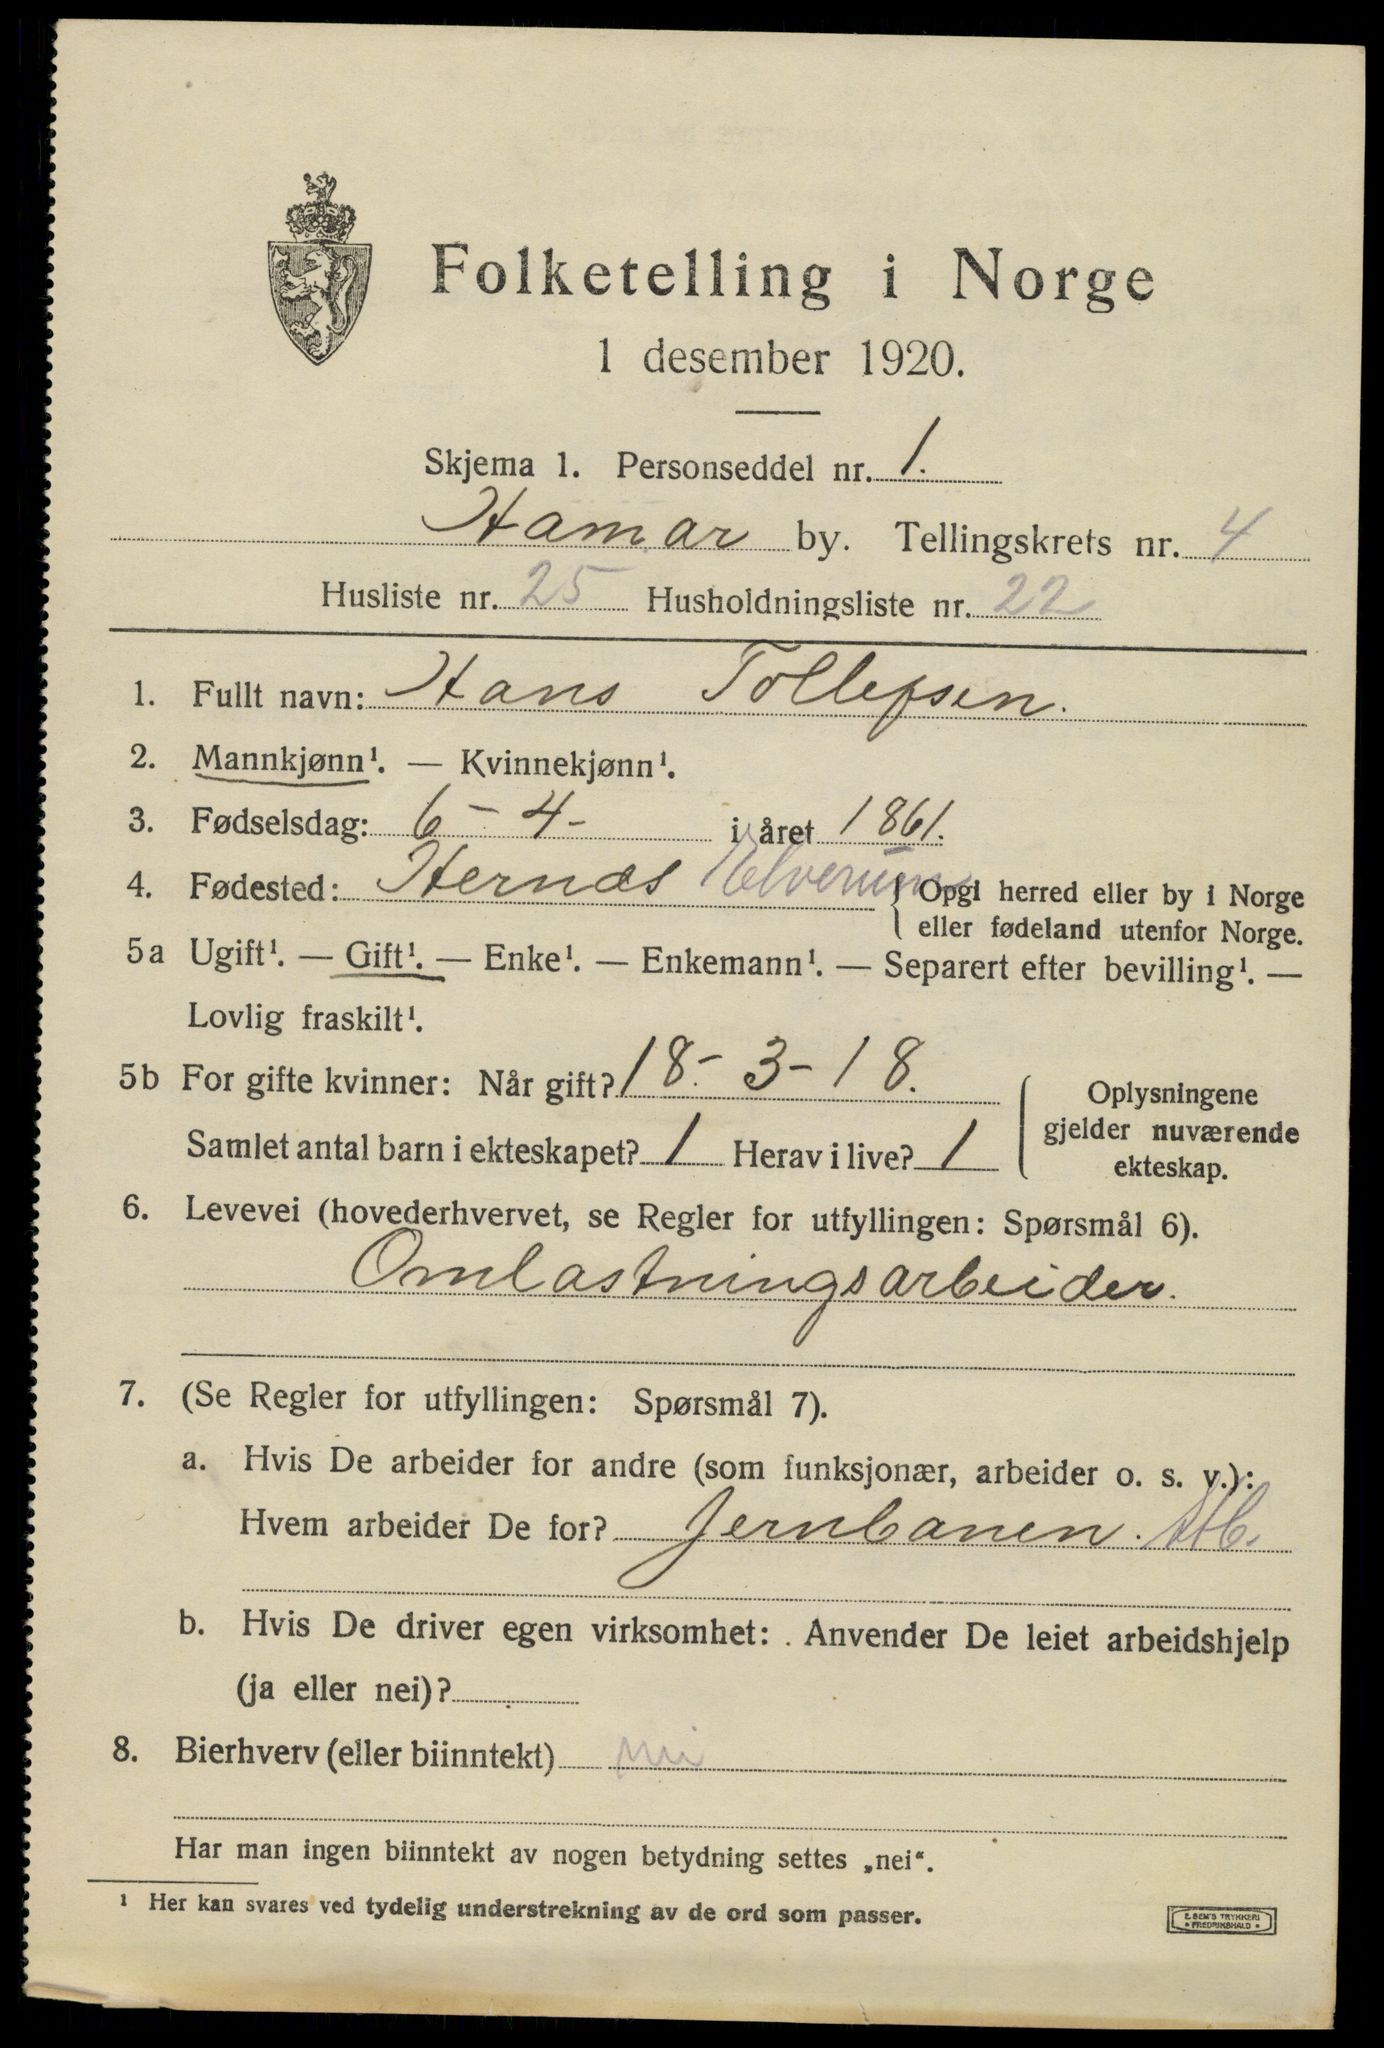 Folketelling i Norge
1 desember 1920.
Skjema 1. Personseddel nr. 1.
Hamar by. Tellingskrets nr. 4
Husliste nr. 25 Husholdningsliste nr. 22
1. Fullt navn: Hans Tollefsen.
2. Mannkjønn¹. — Kvinnekjønn¹.
3. Fødselsdag: 6 - 4 - i året 1861.
4. Fødested: Hernæs Elverum { Opgi herred eller by i Norge
eller fødeland utenfor Norge.
5a Ugift¹. — Gift¹. — Enke¹. — Enkemann¹. — Separert efter bevilling¹. —
Lovlig fraskilt¹.
5b For gifte kvinner: Når gift? 18.- 3 - 18.
Samlet antal barn i ekteskapet? 1 Herav i live? 1
{ Oplysningene
gjelder nuværende
ekteskap.
6. Levevei (hovederhvervet, se Regler for utfyllingen: Spørsmål 6).
Omlastningsarbeider.
7. (Se Regler for utfyllingen: Spørsmål 7).
a. Hvis De arbeider for andre (som funksjonær, arbeider o. s. v.):
Hvem arbeider De for? Jernbanen.
b. Hvis De driver egen virksomhet: Anvender De leiet arbeidshjelp
(ja eller nei)?
8. Bierhverv (eller biinntekt) nei
Har man ingen biinntekt av nogen betydning settes „nei“.
¹ Her kan svares ved tydelig understrekning av de ord som passer.
E. SEM'S TRYKKERI
• FREDRIKSHALD •